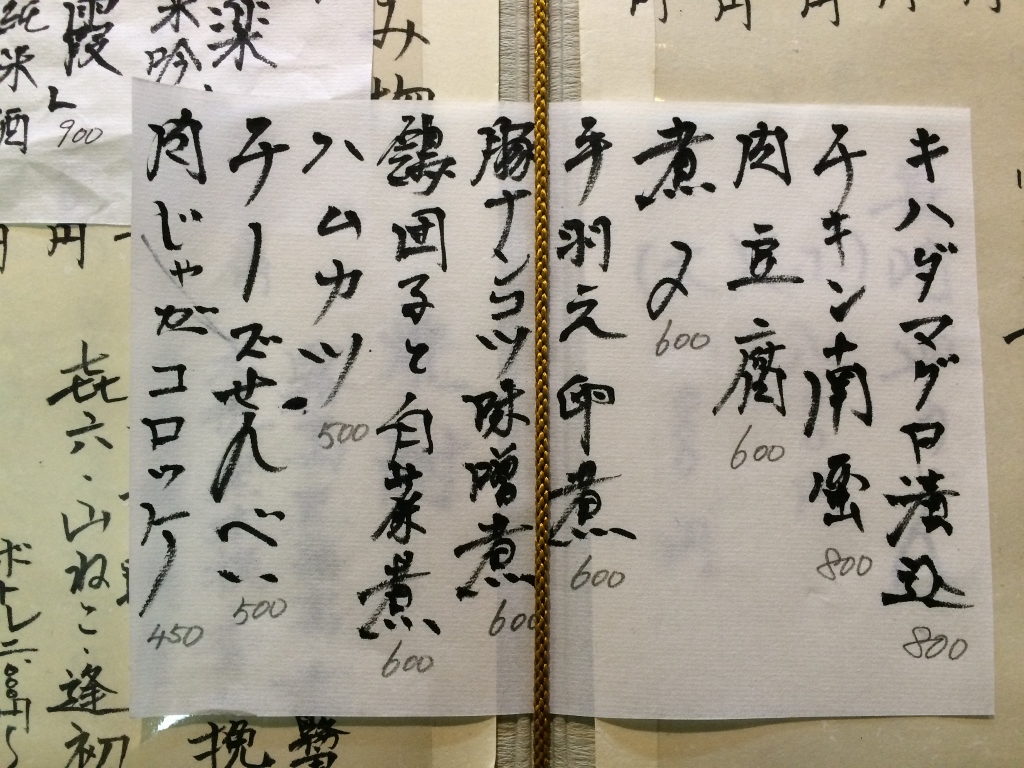 キハダマグロ漬込 800
チキン南蛮 800
肉豆腐 600
煮〆 600
手羽元卵煮 600
豚ナンコツ味噌煮 600
鶏団子と白菜煮 600
ハムカツ 500
チーズせんべい 500
肉じゃがコロッケ 450
楽
米吟
霞
900
純米酒
み物
喜六・山ねこ・逢初